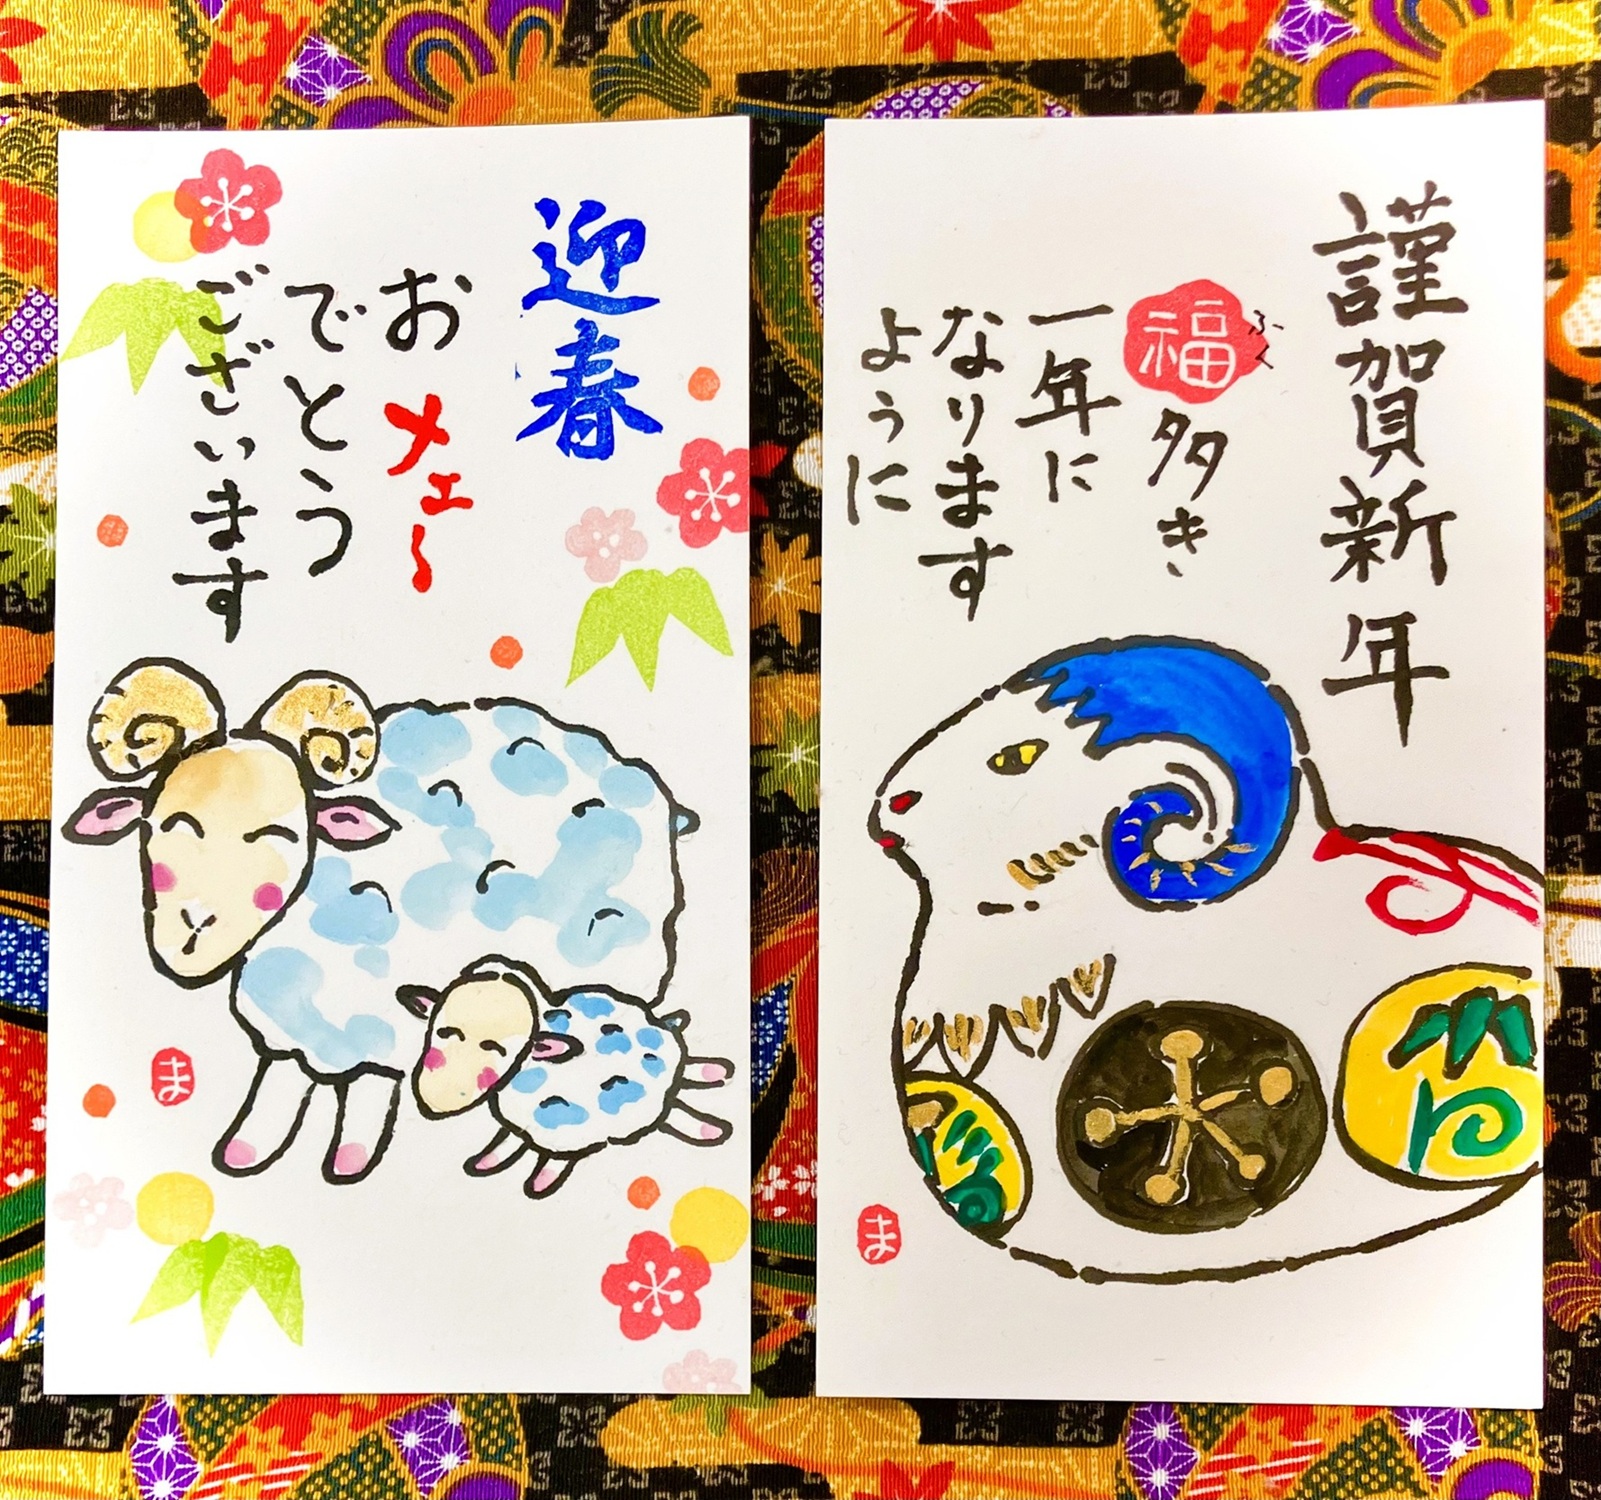 迎春
おメェ〜
でとう
ございます
ま
謹賀新年
福多き
ふく
一年に
なります
ように
ま